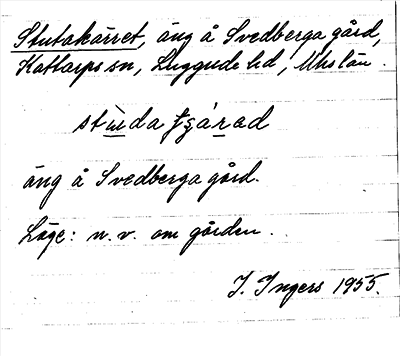 Stutakärret, äng å Svedberga gård,
Kattarps sn, Luggude hd, Mhs län.
äng å Svedberga gård.
Läge: n.v. om gården.
I. Ingers 1955.